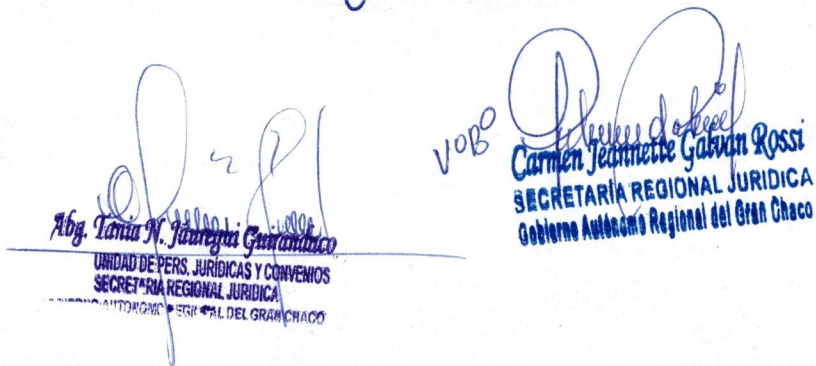 Abg. Tania N. Jauregui
UNIDAD DE PERS. JURÍDICAS Y CONVENIOS
SECRETARIA REGIONAL JURIDICA
AUTONOMO REGIONAL DEL GRAN CHACO
VOBO
Carmen Jeannette Galván Rossi
SECRETARÍA REGIONAL JURIDICA
Gobierno Autónomo Regional del Gran Chaco